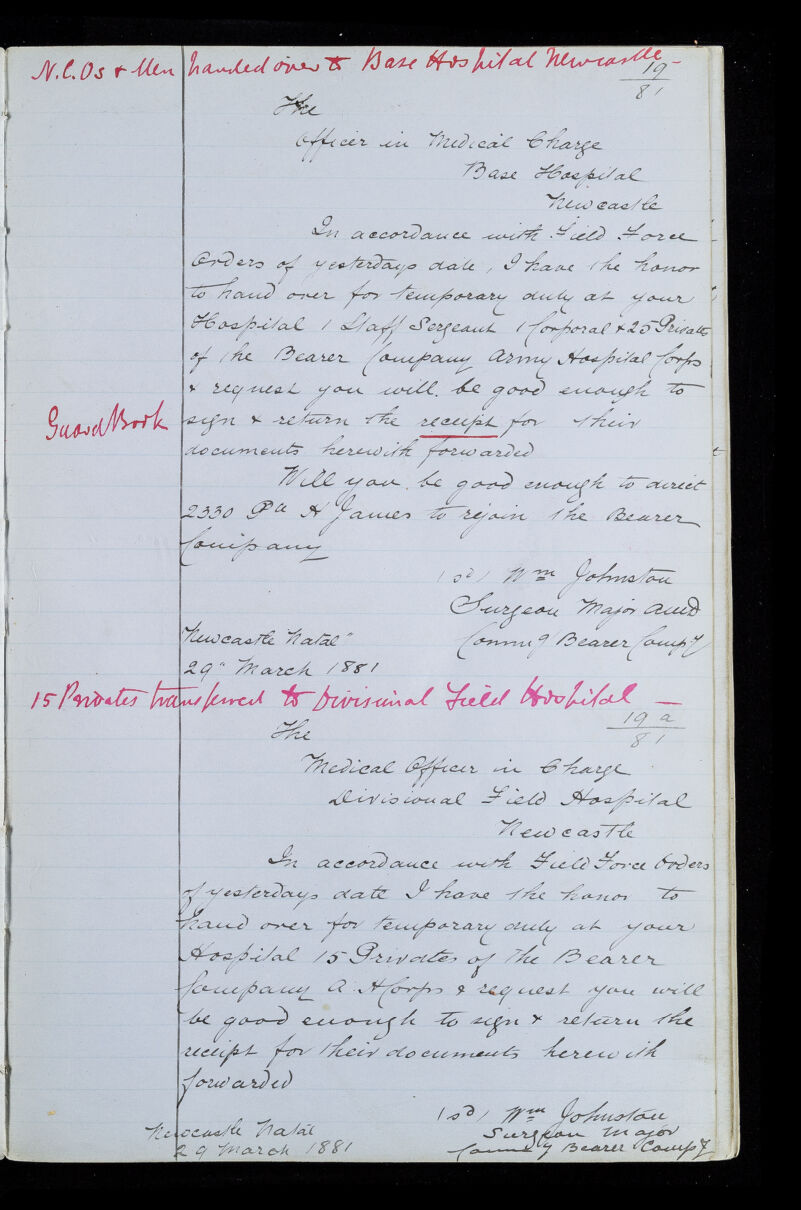 N.C.Os & Men handed over to Base Hospital Newcastle -
19
81
The
Officer in Medical Charge
Base Hospital
Newcastle
In accordance with Field Force
Orders of yesterdays date, I have the honor
to hand over for temporary duty at your
Hospital 1 Staff Sergeant 1 Corporal & 25 Privates
of the Bearer Company Army Hospital Corps
& request you will be good enough to
Guard Book
sign & return the receipt for their
documents herewith forwarded
Will you be good enough to direct
2330 Pte H James to rejoin the Bearer
Company
(sd) Wm Johnston
Surgeon Major AMD
Newcastle Natal"
Commg Bearer Compy
29" March 1881
15 Privates transferred to Divisional Field Hospital —
19 a
81
The
Medical Officer in Charge
Divisional Field Hospital
Newcastle
In accordance with Field Force Orders
of yesterdays date I have the honor to
hand over for temporary duty at your
Hospital 15 Privates of the Bearer
Company A. H Corps & request you will
be good enough to sign & return the
receipt for their documents herewith
forwarded
(sd) Wm Johnston
Newcastle Natal
Surgeon Major
29 March 1881
Commg Bearer Compy